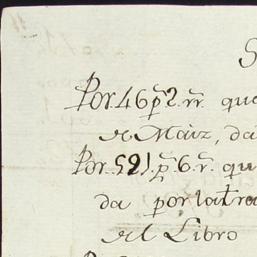 S
Por. 46 p.s 2. rr. que
de Maiz, da
Por. 521. p.s 6. r. qu
da por la tra
del Libro